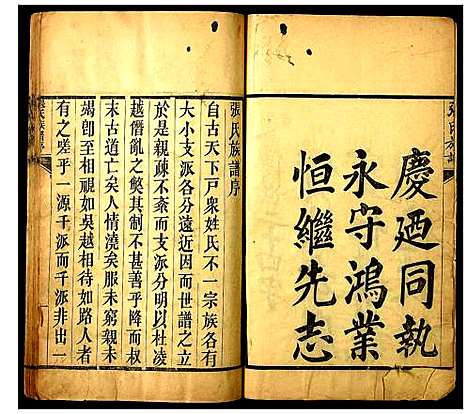 慶廼同執
永守鴻業
恒繼先志
張氏族譜序
自古天下戶衆姓氏不一宗族各有
大小支派各分遠近因而世譜之立
於是親疎不紊而支派分明以杜凌
越僭亂之獘其制不甚善乎降而叔
末古道亡矣人情澆矣服未窮親未
竭卽至相視如吳越相待如路人者
有之嗟乎一源千派而千派非出一